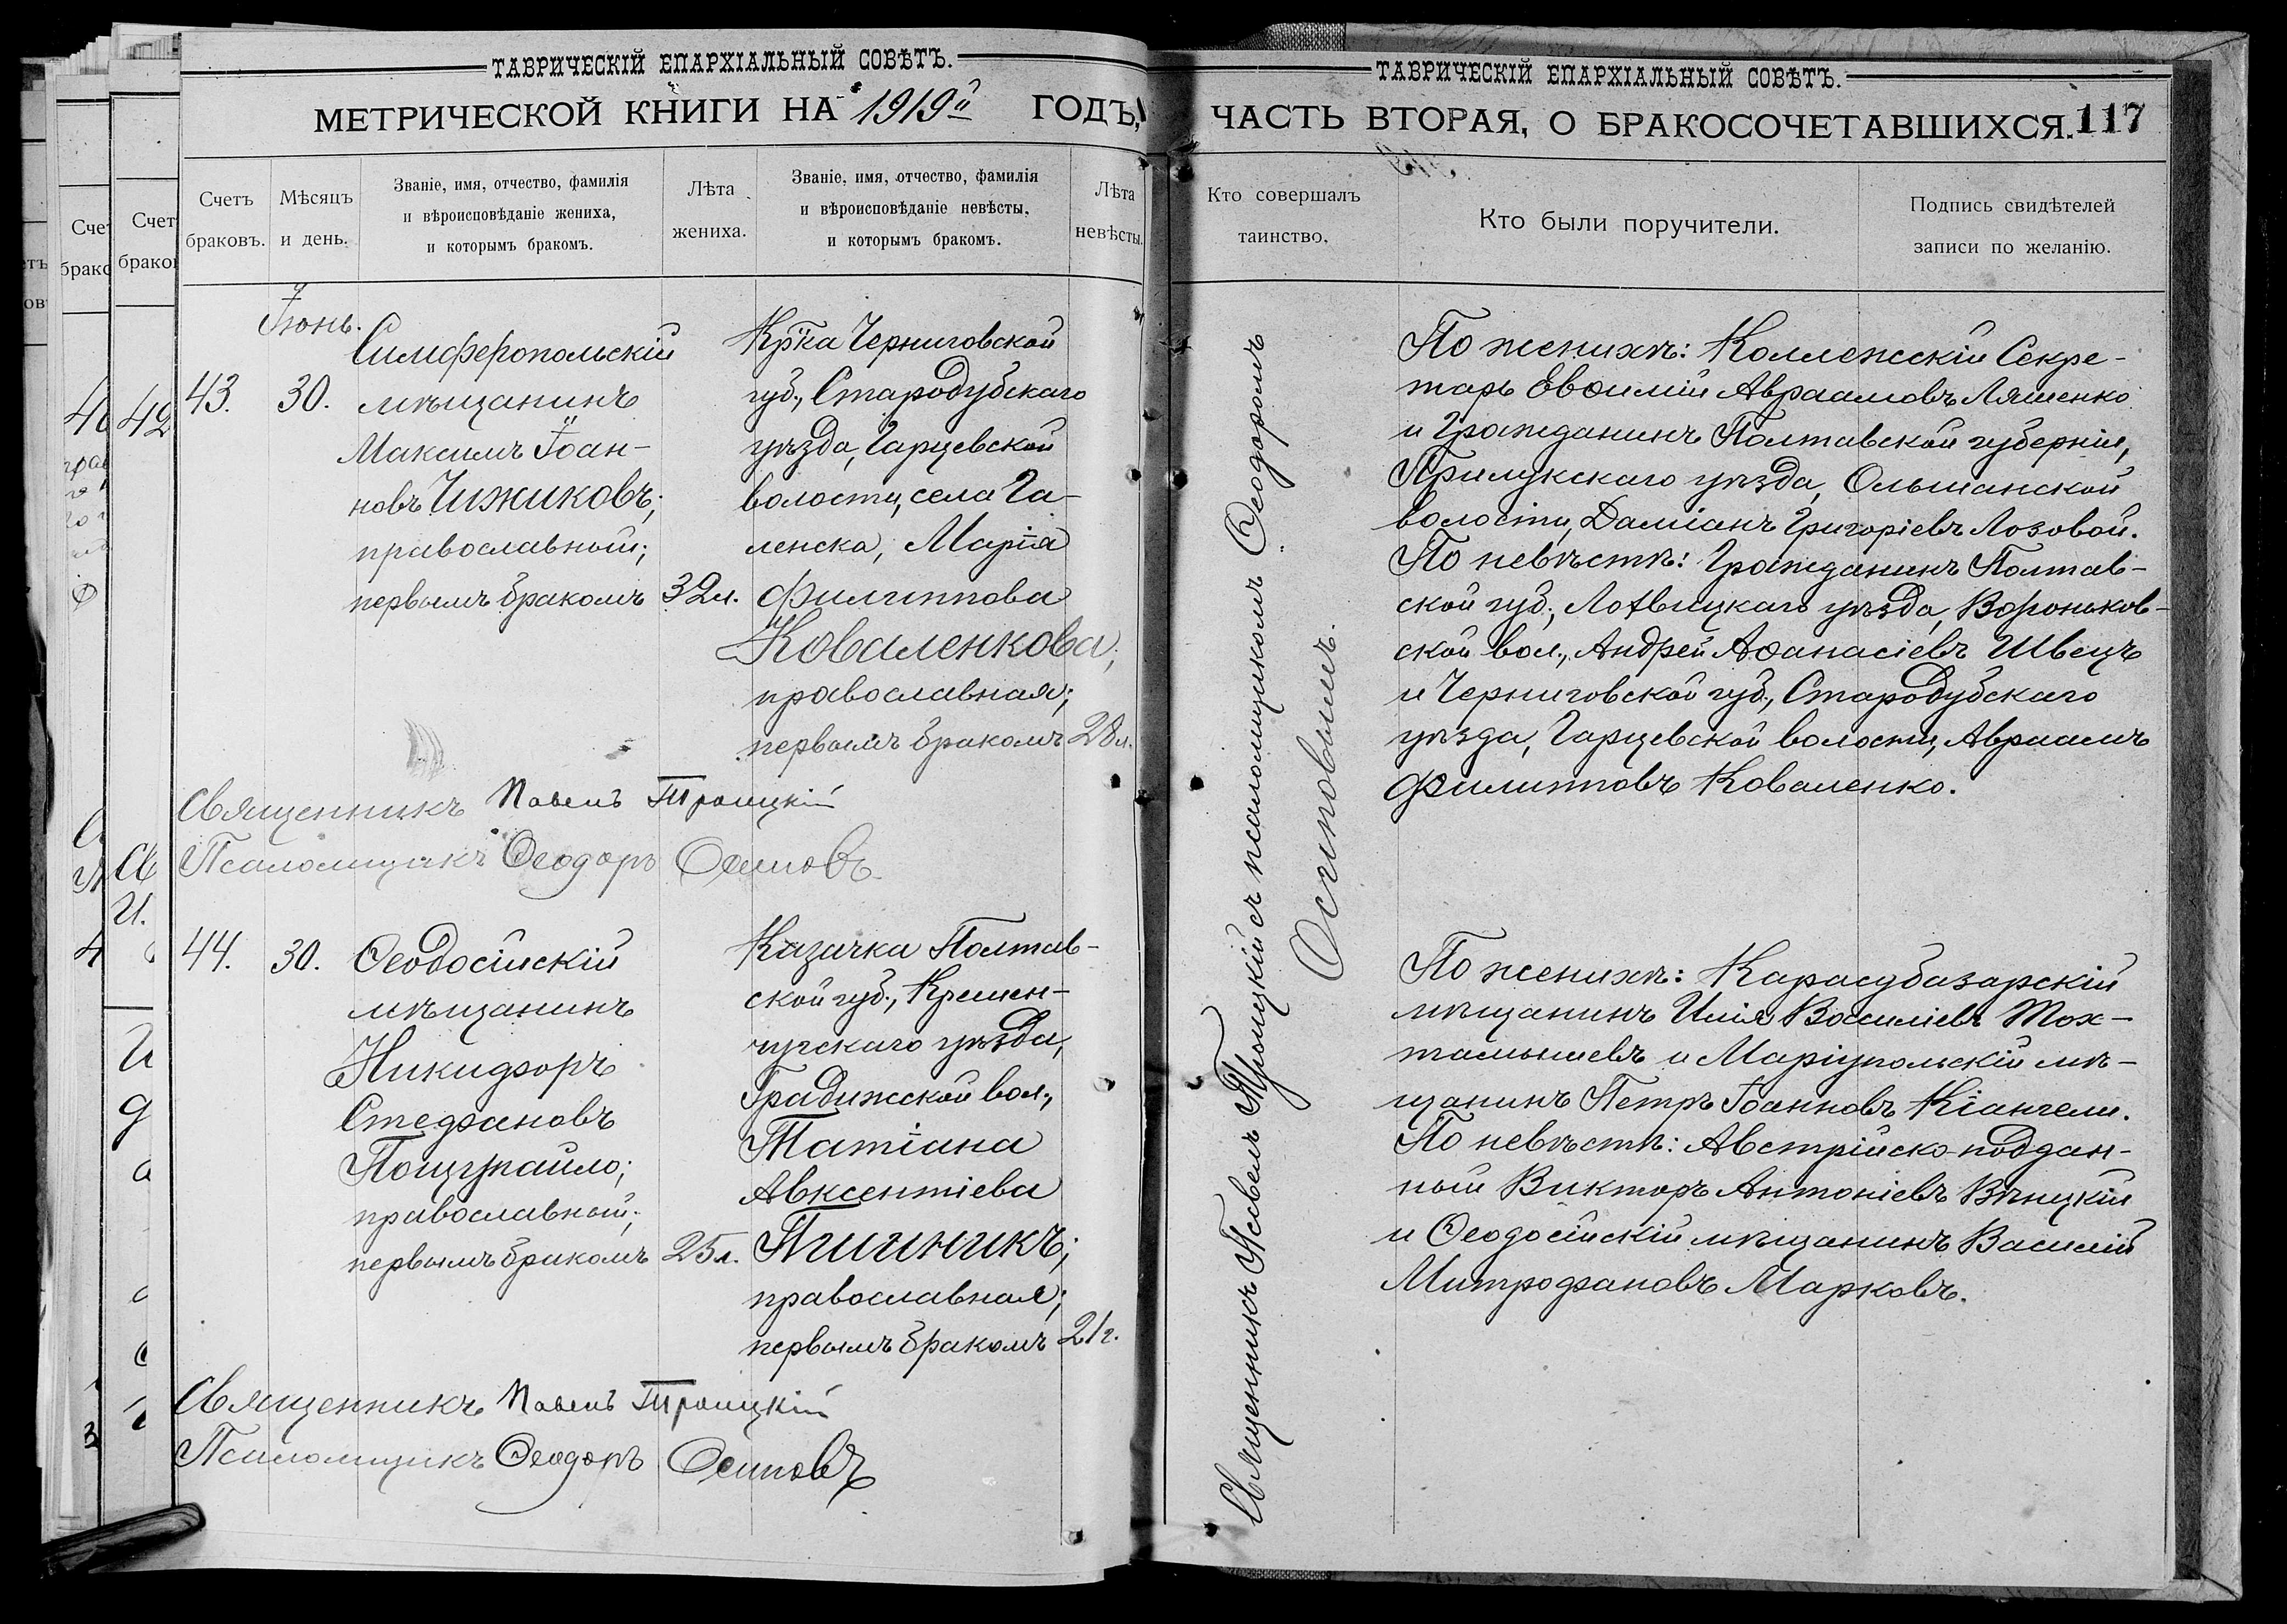 ТАВРИЧЕСКІЙ ЕПАРХІАЛЬНЫЙ СОВѢТЪ.
МЕТРИЧЕСКОЙ КНИГИ НА 1919й ГОДЪ,
Счетъ браковъ.
Мѣсяцъ и день.
Званіе, имя, отчество, фамилія
и вѣроисповѣданіе жениха,
и которымъ бракомъ.
Лѣта
жениха.
Званіе, имя, отчество, фамилія
и вѣроисповѣданіе невѣсты,
и которымъ бракомъ.
Лѣта
невѣсты.
Іюнь.
43.
30.
Симферопольскій
мѣщанинъ
Максимъ Іоан-
новъ Чижиковъ;
православный;
первымъ бракомъ
32 л.
Кр̈ка Черниговской
губ., Стародубскаго
уѣзда, Гарцевской
волости, села Га-
ленска, Марія
Филиппова
Коваленкова;
православная;
первымъ бракомъ
28 л.
Священникъ Павелъ Троицкій
Псаломщикъ Ѳеодоръ Осиповъ
44.
30.
Ѳеодосійскій
мѣщанинъ
Никифоръ
Стефановъ
Пощупайло;
православный;
первымъ бракомъ
25 л.
Казачка Полтав-
ской губ., Кремен-
чугскаго уѣзда,
Градижской вол.,
Татіана
Авксентіева
православная;
первымъ бракомъ
21 г.
Священникъ Павелъ Троицкій
Псаломщикъ Ѳеодоръ Осиповъ
ТАВРИЧЕСКІЙ ЕПАРХІАЛЬНЫЙ СОВѢТЪ.
ЧАСТЬ ВТОРАЯ, О БРАКОСОЧЕТАВШИХСЯ.
117
Кто совершалъ
таинство.
Кто были поручители.
Подпись свидѣтелей
записи по желанію.
Священникъ Павелъ Троицкій съ псаломщикомъ Ѳеодоромъ
Осиповымъ.
По женихѣ: Коллежскій Секре-
тарь Евѳимій Авраамовъ Ляшенко
и Гражданинъ Полтавской губерніи,
Прилукскаго уѣзда, Ольшанской
волости, Даміанъ Григоріевъ Лозовой.
По невѣстѣ: Гражданинъ Полтав-
ской губ., Лохвицкаго уѣзда, Вороньков-
ской вол., Андрей Аѳанасіевъ Швецъ
и Черниговской губ., Стародубскаго
уѣзда, Гарцевской волости, Авраамъ
Филипповъ Коваленко.
По женихѣ: Карасубазарскій
мѣщанинъ Илія Василіевъ Тох-
тамышевъ и Маріупольскій мѣ-
щанинъ Петръ Іоанновъ Кіангели.
По невѣстѣ: Австрійско-поддан-
ный Викторъ Антоніевъ Вѣницкій
и Ѳеодосійскій мѣщанинъ Василій
Митрофановъ Марковъ.